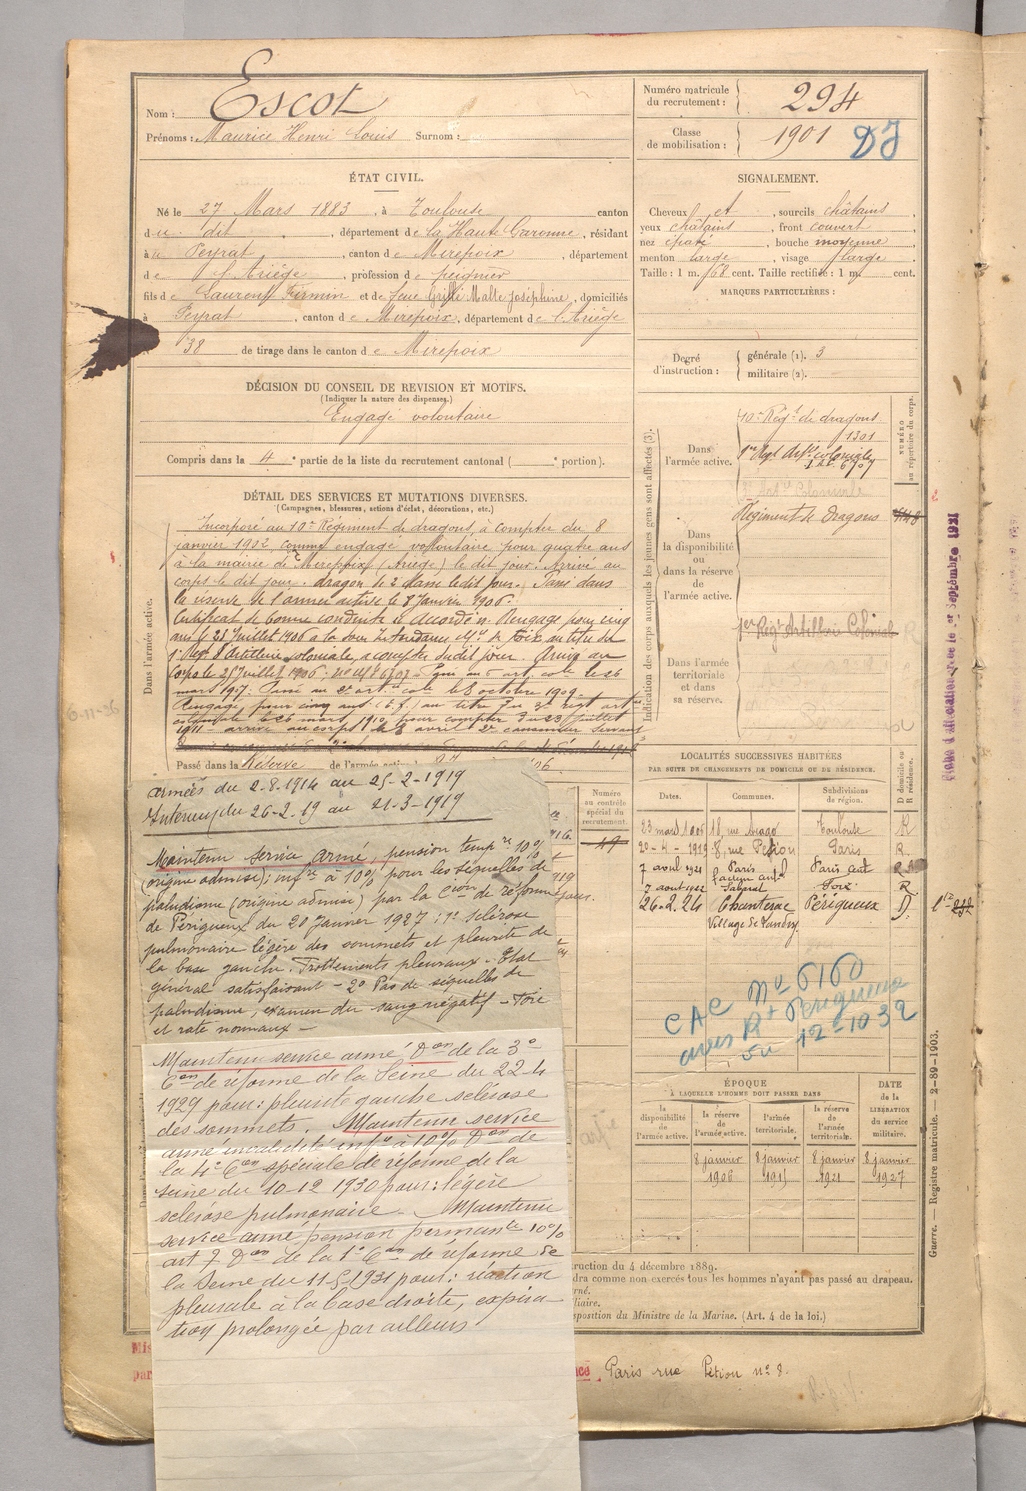 Nom : Escot
Prénoms : Maurice Henri Louis Surnom :
Numéro matricule du recrutement : 294
Classe de mobilisation : 1901 DJ
ÉTAT CIVIL.
Né le 27 Mars 1883, à Toulouse canton
du dit, département de la Haute Garonne, résidant
à Peyrat, canton de Mirepoix, département
de l'Ariège, profession de peignier
fils de Laurent Firmin et de feue Griffe Malte Joséphine, domiciliés
à Peyrat, canton de Mirepoix, département de l'Ariège
38 de tirage dans le canton de Mirepoix
SIGNALEMENT.
Cheveux et, sourcils châtains,
yeux châtains, front couvert
nez épaté, bouche moyenne
menton large, visage large
Taille : 1 m. 68 cent. Taille rectifiée : 1 m. cent.
MARQUES PARTICULIÈRES :
Degré d'instruction : générale (1). 3
militaire (2).
DÉCISION DU CONSEIL DE REVISION ET MOTIFS.
(Indiquer la nature des dispenses.)
Engagé volontaire
Compris dans la 4e partie de la liste du recrutement cantonal ( e portion).
DÉTAIL DES SERVICES ET MUTATIONS DIVERSES.
(Campagnes, blessures, actions d'éclat, décorations, etc.)
Dans l'armée active.
Incorporé au 10e Régiment de dragons, à compter du 8
janvier 1902, comme engagé volontaire pour quatre ans
à la mairie de Mirepoix (Ariège) le dit jour. Arrivé au
corps le dit jour. dragon de 2e classe le dit jour. Passé dans
la réserve de l'armée active le 8 Janvier 1906.
Certificat de bonne conduite accordé. Rengagé pour cinq
ans le 23 Juillet 1906 à la Sous Intendance Mre de Foix au titre du
1er Régt d'Artillerie coloniale, à compter du dit jour. Arrivé au
corps le 25 Juillet 1906; no Mle 6707
mars 1907. Passé au art. cole le 8 octobre 1909.
Rengagé pour cinq ans au titre du 3e régt art.
coloniale le 26 mars 1910 pour compter du 23 juillet
1911 arrivé au corps le 8 avril 2e canonnier servant
Passé dans la Réserve de l'armée
Indication des corps auxquels les jeunes gens sont affectés (3).
NUMÉRO au répertoire du corps.
Dans l'armée active.
10e Régt de dragons
1301
1er Régt d'Art coloniale
6707
Régiment de dragons
Dans la disponibilité ou dans la réserve de l'armée active.
1er Régt Artillerie Coloniale
Dans l'armée territoriale et dans sa réserve.
LOCALITÉS SUCCESSIVES HABITÉES
PAR SUITE DE CHANGEMENTS DE DOMICILE OU DE RÉSIDENCE.
Dates. Communes. Subdivisions de région. D domicile ou R résidence.
23 mars 1906 18, rue Toulouse R
20-4-1919 8, rue Pétion Paris R
7 avril 1921 Paris Paris
7 août 1922 Foix R
26.2.24 Chanterac Périgueux D
Village de
Numéro au contrôle spécial du recrutement.
49
CAC No 6160
avis Rt Périgueux
du 12-10 32
ÉPOQUE
À LAQUELLE L'HOMME DOIT PASSER DANS
la disponibilité de l'armée active. la réserve de l'armée active. l'armée territoriale. la réserve de l'armée territoriale. DATE de la LIBÉRATION du service militaire.
8 janvier 1906 8 janvier 1915 8 janvier 1921 8 janvier 1927
armées du 2.8.1914 au 25-2-1919
Intérieur du 26-2.19 au 21-3-1919
Maintenu service armé, pension tempre 10%
(origine admise); infre à 10% pour les séquelles de
paludisme (origine admise) par la Cion de réforme
de Périgueux du 20 Janvier 1927 : 1o sclérose
pulmonaire légère des sommets et pleurite de
la base gauche. Frottements pleuraux - Etat
général satisfaisant - 2o Pas de séquelles de
paludisme, examen du sang négatif - Foie
et rate normaux -
Maintenu service armé Don de la 3e
Con de réforme de la Seine du 22-4
1929 pour : pleurite gauche sclérose
des sommets. Maintenu service
armé invalidité infre à 10% Don de
la 4e Con spéciale de réforme de la
Seine du 10-12 1930 pour : légère
sclérose pulmonaire. Maintenu
service armé pension permante 10%
art 7 Don de la 1e Con de réforme de
la Seine du 11-5-1931 pour : réaction
pleurale à la base droite, expira-
tion prolongée par ailleurs
ruction du 4 décembre 1889.
dra comme non exercés tous les hommes n'ayant pas passé au drapeau.
rné.
liaire.
sposition du Ministre de la Marine. (Art. 4 de la loi.)
Paris rue Pétion no 8.
Guerre. — Registre matricule. — 2-89-1903.
6-11-36